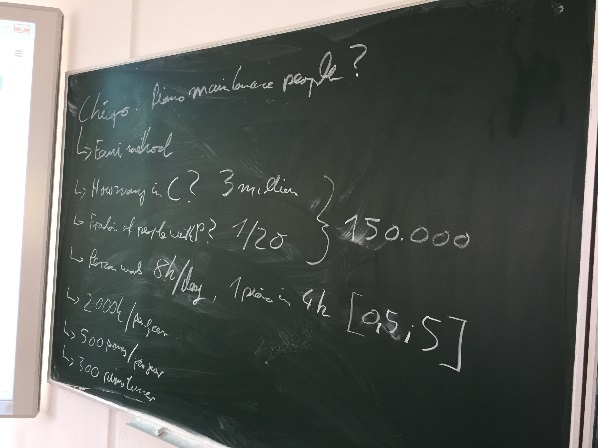 Chicago. Piano maintenance people?
↳ Fermi method
↳ How many in C? 3 million
↳ Fraction of people with P? 1/20
} 150.000
↳ Person works 8h/day, 1 piano in 4h [0,5 ; 5]
↳ 2000h/per year
↳ 500 pianos/per year
↳ 300 piano tuner